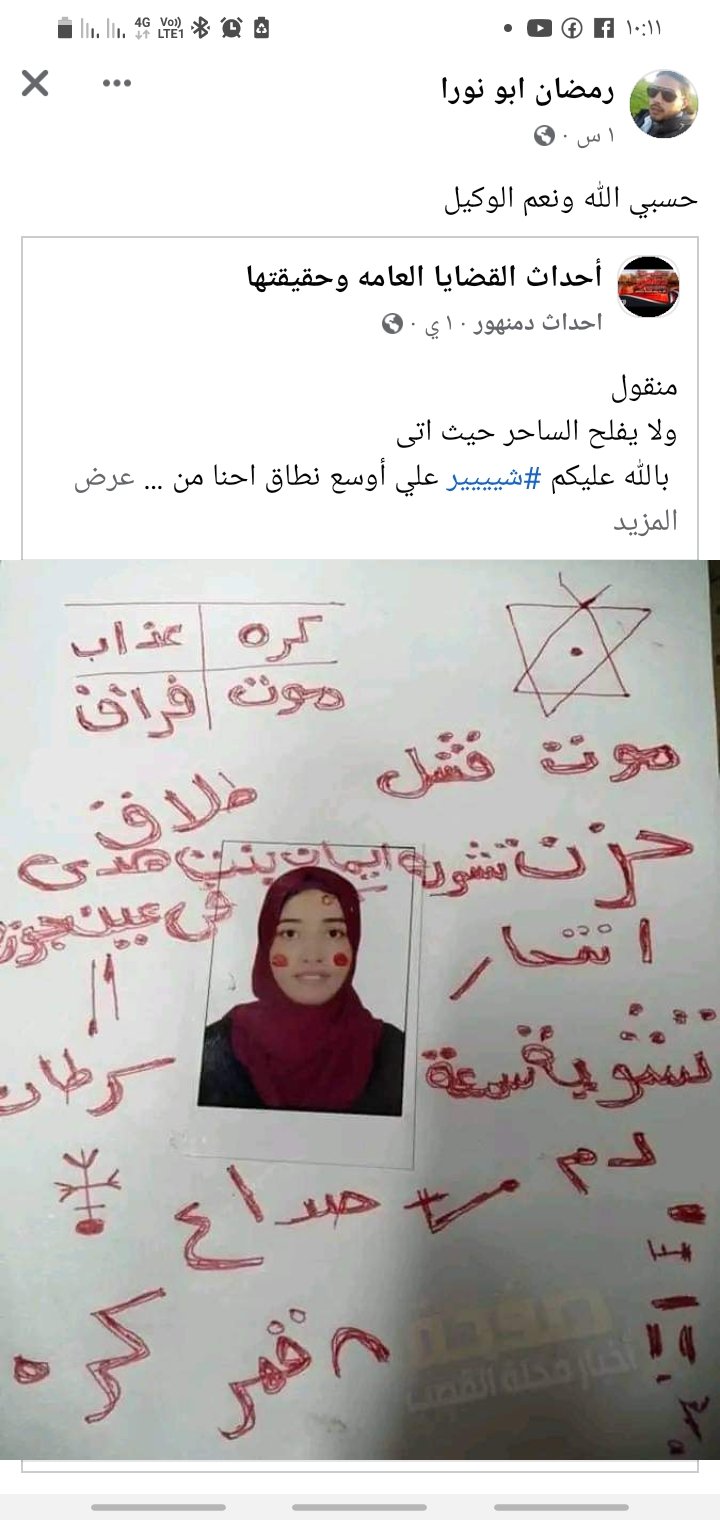 4G Vo)) LTE1 ١٠:١١
رمضان ابو نورا
١ س
حسبي الله ونعم الوكيل
أحداث القضايا العامه وحقيقتها
احداث دمنهور · ١٠ ي
منقول
ولا يفلح الساحر حيث اتى
بالله عليكم #شيييير علي أوسع نطاق احنا من ... عرض
المزيد
كره عذاب
موت فراق
موت فشل
طلاق
حزن تشوره ايمان بنت هدى
في عين جوزها
انتحار
تشوية سمعة
سرطان
دم
صداع
قهر
كره
صفحة
أخبار محلة القصب